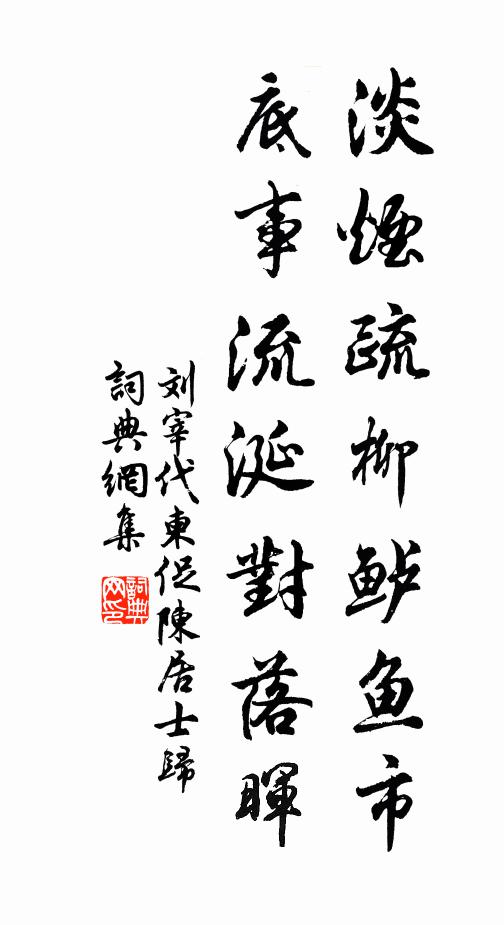 淡煙疏柳鲈鱼市
底事流涎對落暉
刘宰代柬促陳居士歸
詞典網集
詞典
网印